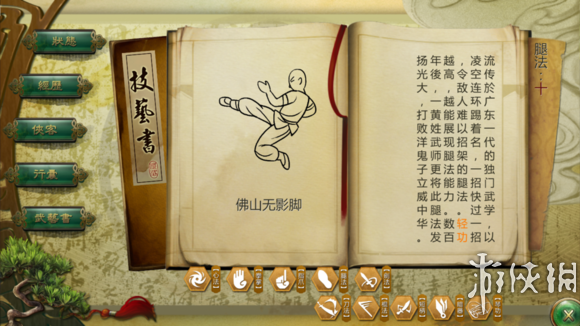 狀態
經歷
俠客
行囊
技藝書
技藝書
佛山无影脚
腿法：十
流传於广东一代的独门武学，以
凌空连环踢着名，一招快过一招
，令敌人难以招架的一招。轻功
越高，越能展现腿法能力。数百
年後，一黄姓武师更将此腿法发
扬光大，打败洋鬼子立威中华。
游侠网